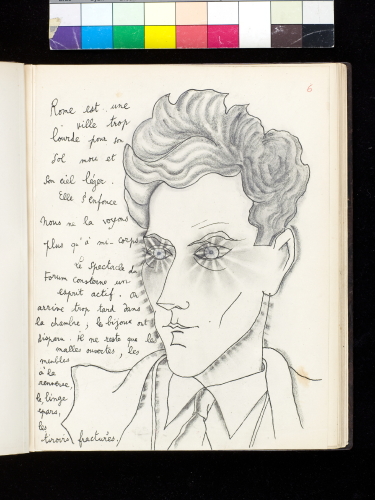 6
Rome est une
ville trop
lourde pour son
sol mou et
son ciel léger.
Elle s'enfonce
nous ne la voyons
plus qu'à mi-corps.
Le spectacle du
Forum consterne un
esprit actif. On
arrive trop tard dans
la chambre; les bijoux ont
disparu. Il ne reste que les
malles ouvertes, les
meubles
à la
renverse,
le linge
épars,
les
tiroirs fracturés.